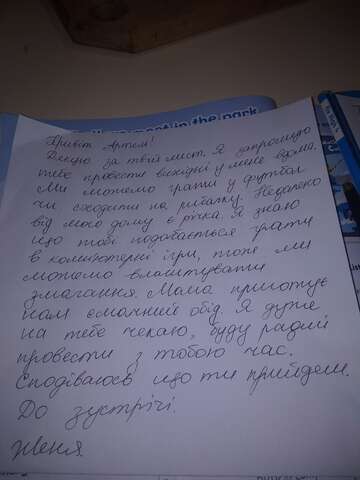 in the park
Привіт Артем!
Дякую за твій лист. Я запрошую
тебе провести вихідні у мене вдома.
Ми можемо грати у футбол
чи сходити на рибалку. Недалеко
від мого дому є річка. Я знаю
що тобі подобається грати
в комп'ютерні ігри, тоже ми
можемо влаштувати
змагання. Мама приготує
нам смачний обід. Я дуже
на тебе чекаю, буду радий
провести з тобою час.
Сподіваюсь що ти прийдеш.
До зустрічі.
Женя